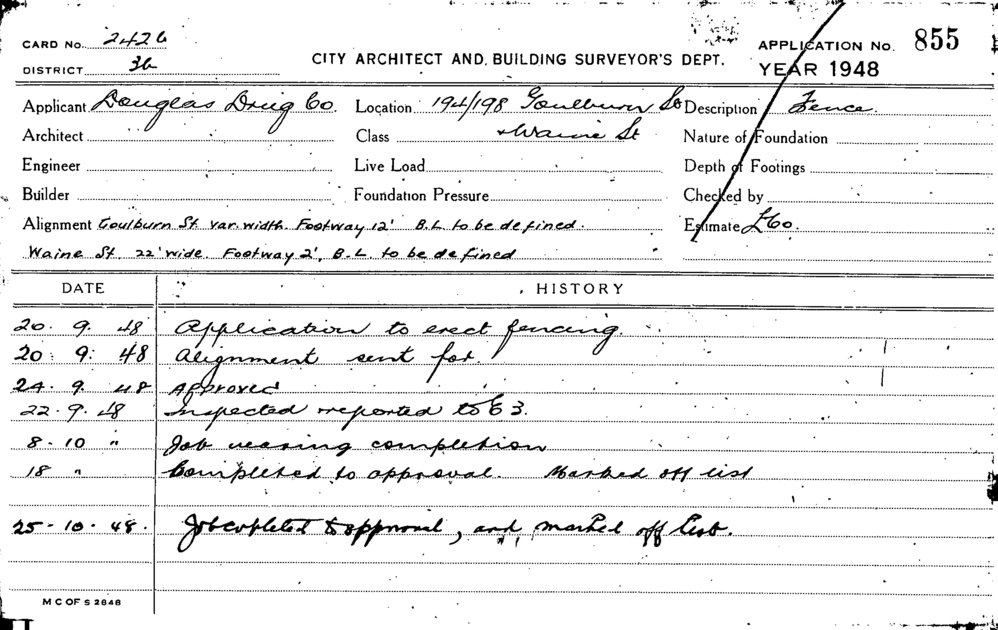 CARD No. 2426
DISTRICT 3b
CITY ARCHITECT AND BUILDING SURVEYOR'S DEPT.
APPLICATION No. 855
YEAR 1948
Applicant Douglas Drug Co. Location 194/198 Goulburn St Description Fence.
Architect Class + Waine St Nature of Foundation
Engineer Live Load Depth of Footings
Builder Foundation Pressure Checked by
Alignment Goulburn St var. width. Footway 12' B.L. to be defined. Estimate £60.
Waine St. 22' wide. Footway 2', B.L. to be defined
DATE HISTORY
20. 9. 48 Application to erect fencing.
20. 9. 48 Alignment sent for.
24. 9. 48 Approved
22. 9. 48 Inspected reported to E3.
8 - 10 " Job nearing completion
18 " Completed to approval. Marked off list
25 - 10 - 48. Job completed to approval, and marked off list.
M C OF S 2848